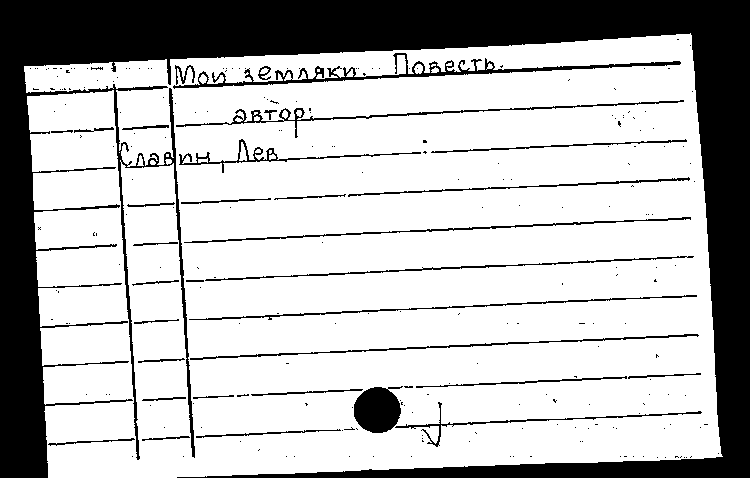 Мои земляки. Повесть.
автор:
Славин, Лев